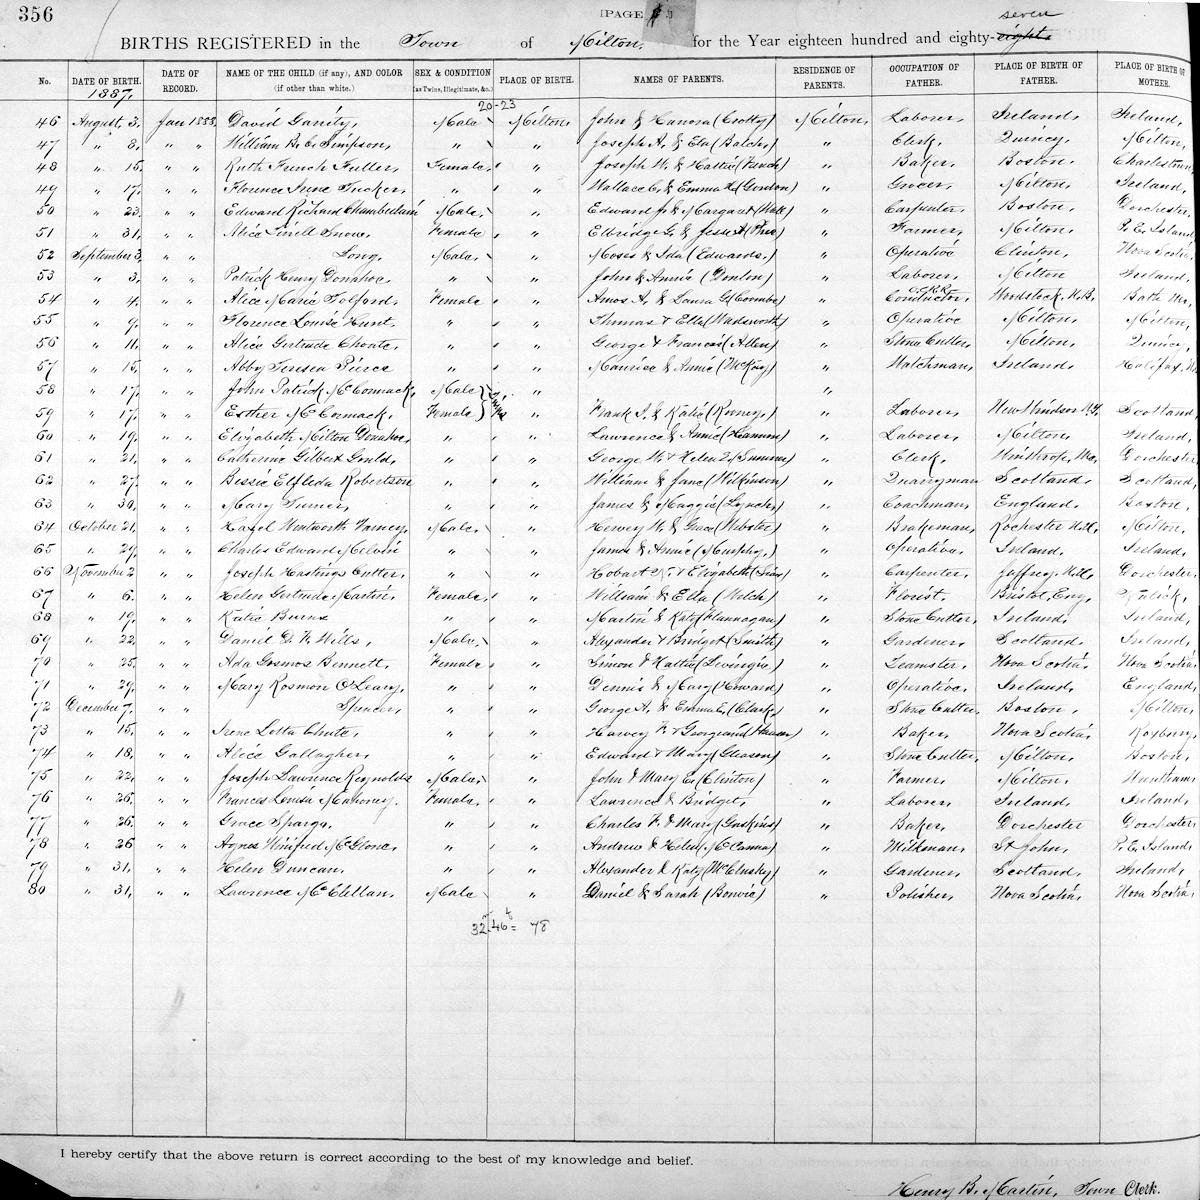 356
[PAGE ]
seven
BIRTHS REGISTERED in the Town of Milton, for the Year eighteen hundred and eighty-eight.
No. DATE OF BIRTH. DATE OF RECORD. NAME OF THE CHILD (if any), AND COLOR (if other than white.) SEX & CONDITION (as Twins, Illegitimate, &c.) PLACE OF BIRTH. NAMES OF PARENTS. RESIDENCE OF PARENTS. OCCUPATION OF FATHER. PLACE OF BIRTH OF FATHER. PLACE OF BIRTH OF MOTHER.
1887. 20-23
46 August, 3. Jan 1888. David Garity, Male Milton, John & Hanora (Crotty) Milton, Laborer, Ireland, Ireland,
47 " 8. " " William B. C. Simpson, " " Joseph A. & Eta (Balch,) " Clerk, Quincy, Milton,
48 " 15. " " Ruth French Fuller, Female, " Joseph W. & Hattie (French) " Baker, Boston, Charlestown,
49 " 17. " " Florence Irene Tucker, " " Wallace C. & Emma H. (Gordon) " Grocer, Milton, Ireland,
50 " 23. " " Edward Richard Chamberlain Male, " Edward J. & Margaret (Walt) " Carpenter, Boston, Dorchester,
51 " 31. " " Alice Tirell Snow, Female " Elbridge G. & Jesse A. " Farmer, Milton, P. E. Island,
52 September 3, " " Long, Male, " Moses & Ida (Edwards,) " Operative Clinton, Nova Scotia,
53 " 3. " " Patrick Henry Donahoe, " " John & Annie (Donlon) " Laborer, Milton Ireland,
54 " 4. " " Alice Marie Folford, Female " Amos A. & Laura G. (Coombs) " O.C.R.R. Conductor, Woodstock, N.B. Bath Me,
55 " 9. " " Florence Louise Hunt, " " Thomas & Ella (Wadsworth) " Operative Milton, Milton,
56 " 11. " " Alice Gertrude Choate, " " George & Frances (Allen) " Stone Cutter, Milton, Quincy,
57 " 15. " " Abby Teresa Pierce " " Maurice & Annie (McKay) " Watchman, Ireland, Halifax, N.
58 " 17. " " John Patrick McCormack, Male } Twins " "
59 " 17. " " Esther McCormack, Female } " Frank I. & Katie (Kenney,) " Laborer, New Windsor N.Y. Scotland,
60 " 19. " " Elizabeth Milton Donahoe, " " Lawrence & Annie (Hannon) " Laborer, Milton, Ireland,
61 " 21. " " Catherine Gilbert Gould, " " George W. & Helen L. (Sumner) " Clerk, Winthrop, Me, Dorchester
62 " 27. " " Bessie Elfleda Robertson " " William & Jane (Wilkinson) " Quarryman Scotland, Scotland,
63 " 30. " " Mary Turner, " " James & Maggie (Lynch,) " Coachman, England, Boston,
64 October 21. " " Hazel Wentworth Varney, Male, " Hervey W. & Grace (Webster) " Brakeman, Rochester N.H., Milton,
65 " 29. " " Charles Edward Melvin " " James & Annie (Murphy,) " Operative, Ireland, Ireland,
66 November 2 " " Joseph Hastings Cutter, " " Hobart & Elizabeth " Carpenter, Jaffrey, N.H., Dorchester,
67 " 6. " " Helen Gertrude Martin, Female, " William & Ella (Welch) " Florist, Bristol, Eng, Natick,
68 " 19. " " Katie Burns " " Martin & Katy (Flannagan) " Stone Cutter, Ireland, Ireland,
69 " 22. " " Daniel D. F. Wills, Male, " Alexander & Bridget (Smith) " Gardener, Scotland, Ireland,
70 " 25. " " Ada Gosmos Bennett, Female " Simon & Hattie (Levingie) " Teamster, Nova Scotia, Nova Scotia,
71 " 29. " " Mary Rosmon O'Leary, " " Dennis & Mary (Howard) " Operative, Ireland, England,
72 December 7. " " Spencer, " " George A. & Emma E. (Clark,) " Stone Cutter, Boston, Milton,
73 " 15. " " Irene Letta Chute, " " Harvey F. & Georgeana (Hanson) " Baker, Nova Scotia, Roxbury,
74 " 18. " " Alice Gallagher, " " Edward & Mary (Gleason) " Stone Cutter, Milton, Boston,
75 " 22. " " Joseph Lawrence Reynolds Male, " John & Mary E. (Clinton) " Farmer, Milton, Waltham,
76 " 26. " " Frances Louisa Mahoney. Female, " Lawrence & Bridget, " Laborer, Ireland, Ireland,
77 " 26. " " Grace Spargo, " " Charles F. & Mary (Gaskins) " Baker, Dorchester Dorchester
78 " 26 " " Agnes Winifred McGlone, " " Andrew & Helen (McCanna) " Milkman, St John, P. E. Island,
79 " 31. " " Helen Duncan, " " Alexander & Katy (McClusky) " Gardener, Scotland, Ireland,
80 " 31. " " Lawrence McClellan, Male " Daniel & Sarah (Bowie) " Polisher, Nova Scotia, Nova Scotia,
32 m 46 f = 78
I hereby certify that the above return is correct according to the best of my knowledge and belief.
Henry B. Martin, Town Clerk.